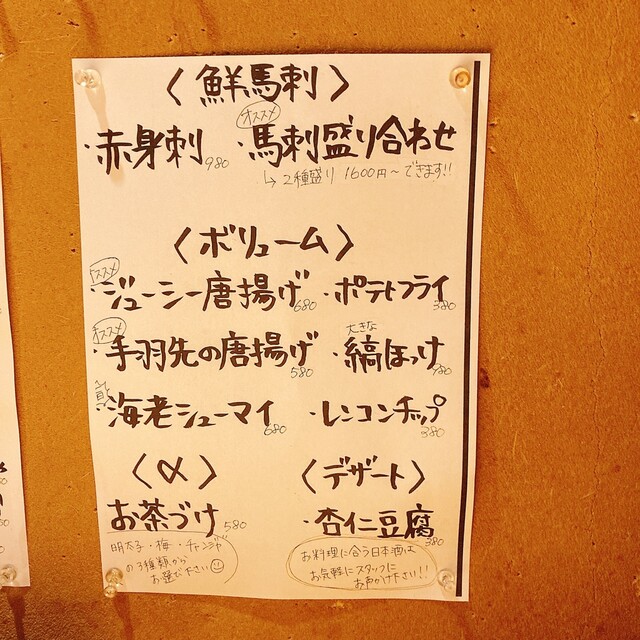 〈鮮馬刺〉
オススメ
・赤身刺 980 ・馬刺盛り合わせ
↳2種盛り 1600円〜できます!!
〈ボリューム〉
オススメ
・ジューシー唐揚げ 680 ・ポテトフライ 380
オススメ 大きな
・手羽先の唐揚げ 580 ・縞ほっけ 780
海老シューマイ 680 ・レンコンチップ 380
〈α〉 〈デザート〉
お茶づけ 580 ・杏仁豆腐 380
明太子・梅・チャンジャ
の3種類から
お選び下さい
お料理に合う日本酒は
お気軽にスタッフに
お声かけ下さい!!